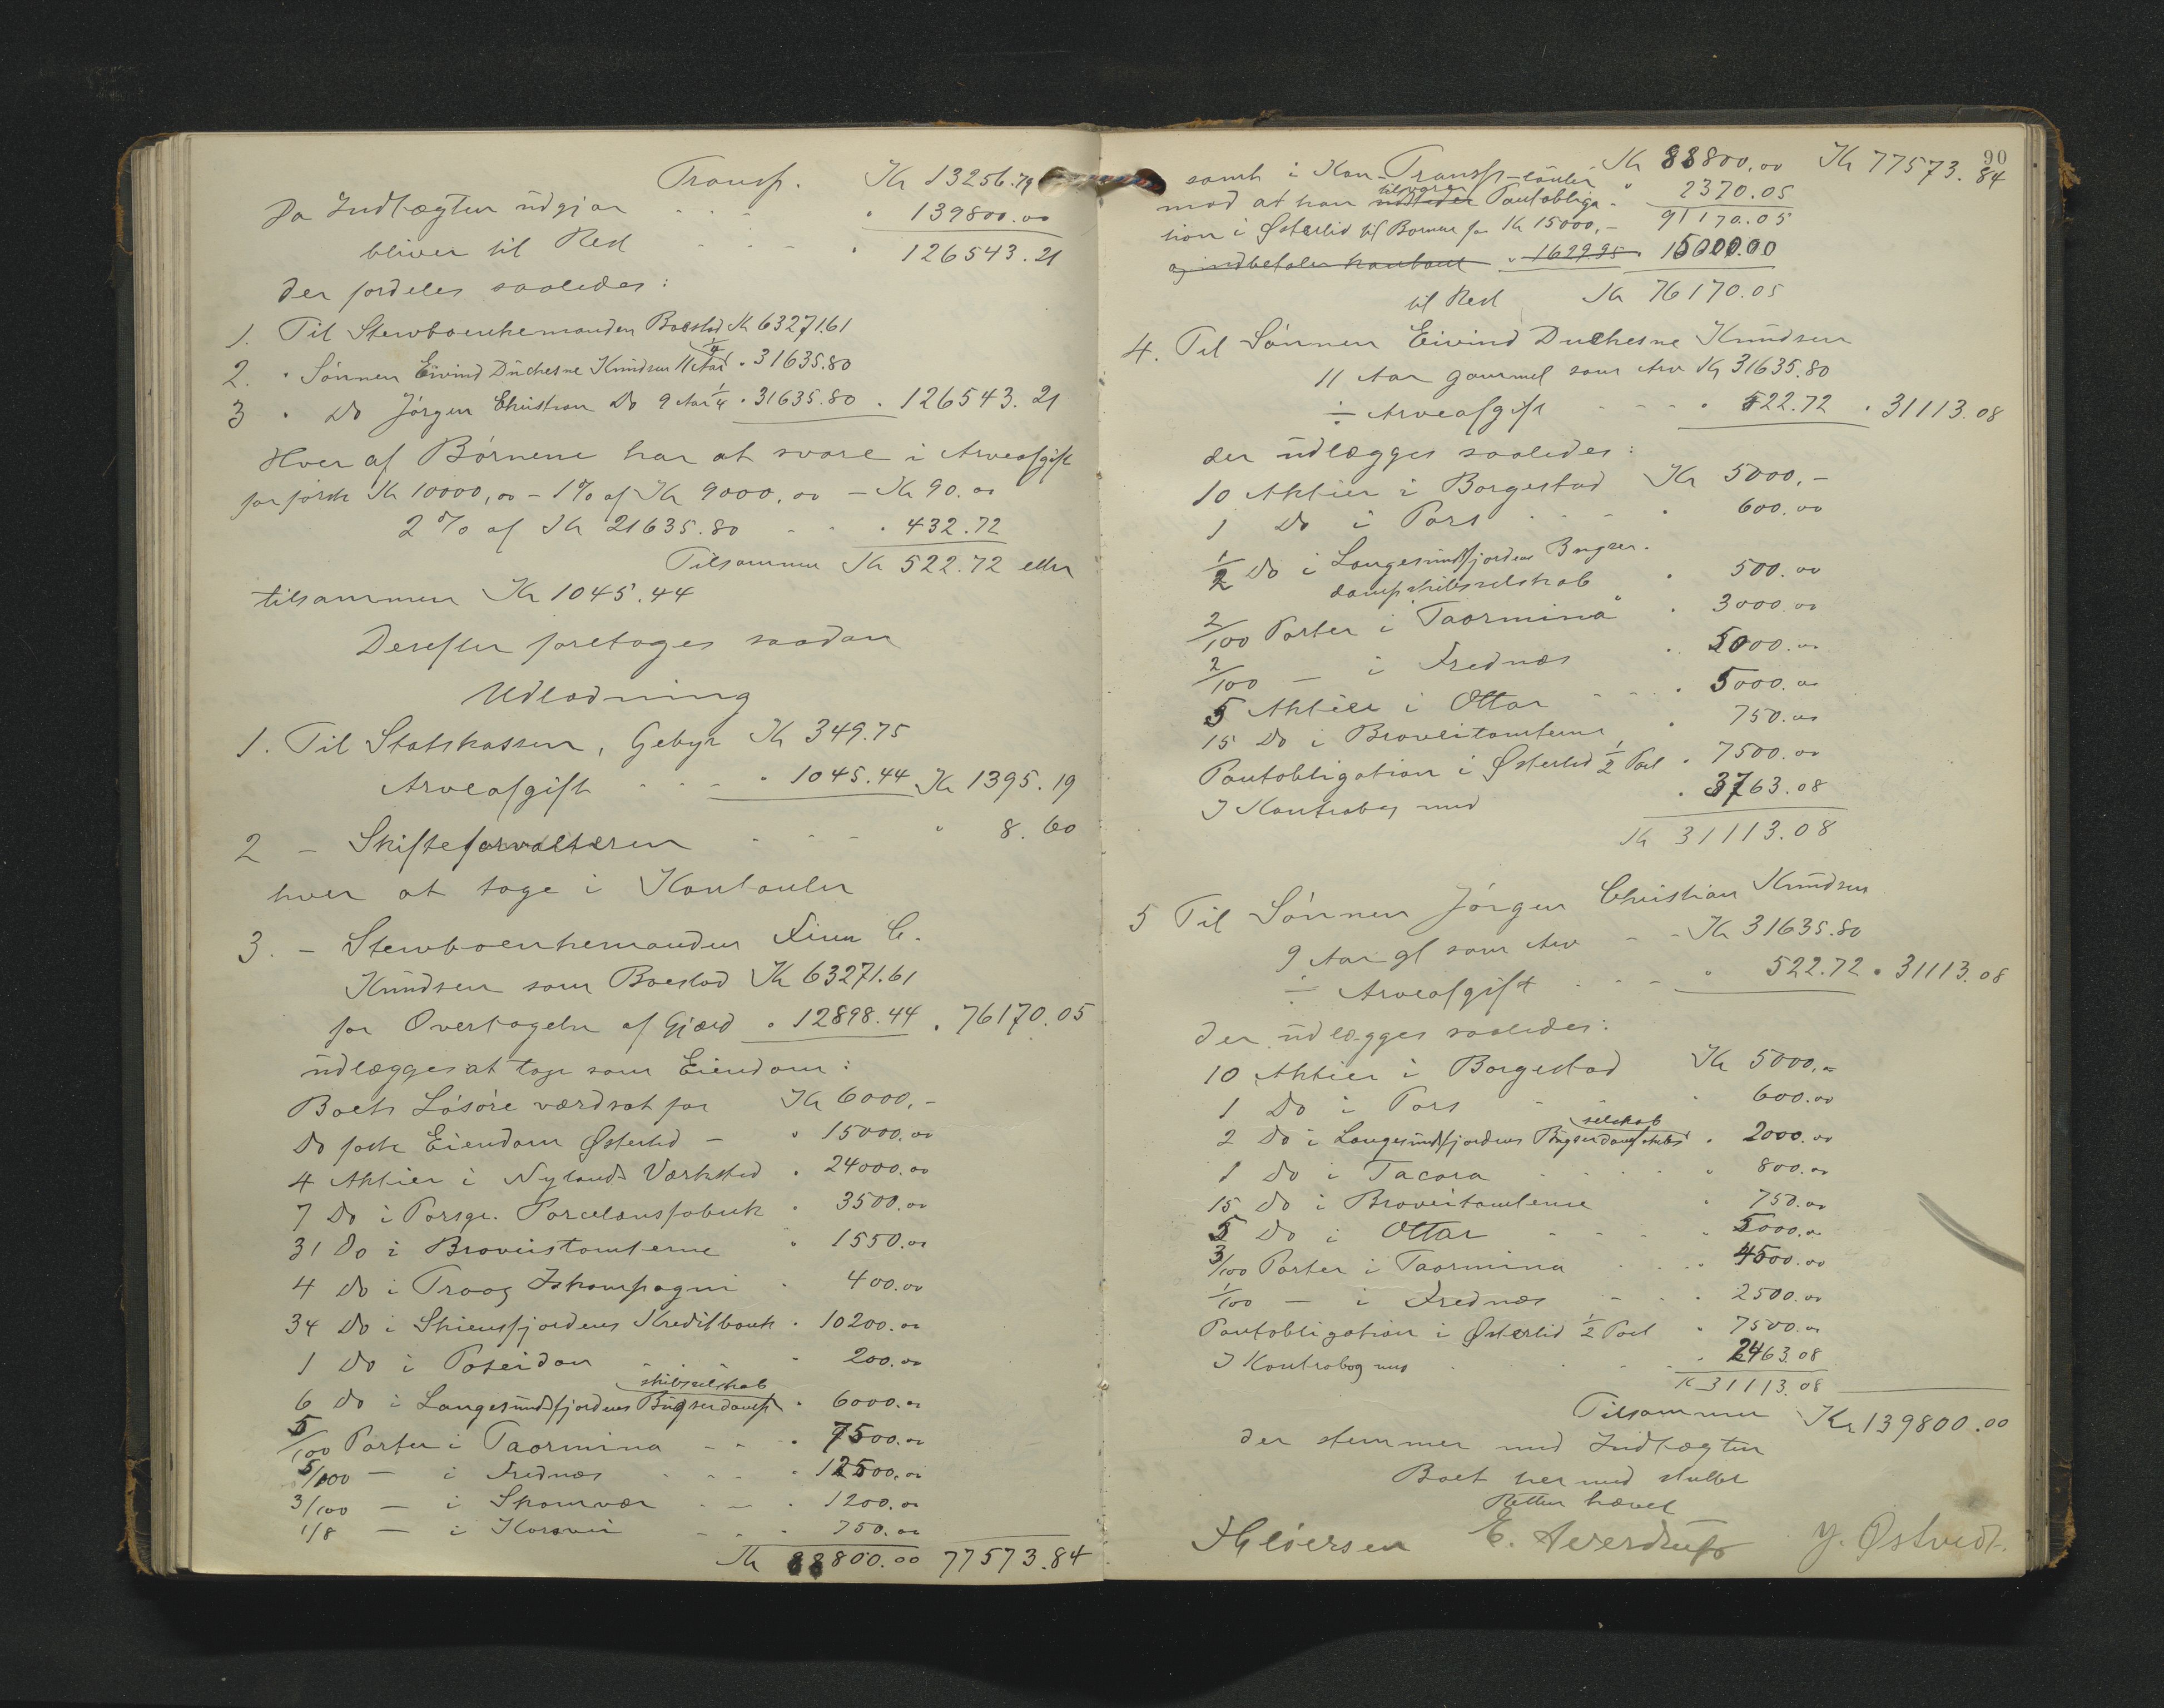 Transp. Kr 13256.79
Da Indtægten üdgjør " 139800.00
bliver til Rest " 126543.21
der fordeles saaledes:
1. Til Stervboenkemanden Boeslod Kr 63271.61
2. " Sønnen Eivind Düchesne Knüdsen 11 Aar 1/4 " 31635.80
3 " Do Jørgen Christian Do 9 Aar 1/4 " 31635.80 " 126543.21
Hver af Børnene har at svare i Arveafgift
for første Kr 10000,00 - 1% af Kr 9000,00 - Kr 90.00
2% af Kr 21635.80 - " 432.72
Tilsammen Kr 522.72 eller
tilsammen Kr 1045.44
Derefter foretages saadan
Udlodning
1. Til Statskassen, Gebyr Kr 349.75
Arveafgift - - - " 1045.44 Kr 1395.19
2 - Skifteforvalteren - - - " 8.60
hver at tage i Kontanter
3. - Stervboenkemanden Finn C.
Knüdsen som Boeslod Kr 63271.61
for Overtagelse af Gjæld " 12898.44 " 76170.05
üdlægges at tage som Eiendom:
Boets Løsøre værdsat for Kr 6000,-
Do faste Eiendom Østerlid - " 15000.00
4 Aktier i Nylands Værksted " 24000.00
7 Do i Porsgr. Porcelænsfabrik " 3500.00
31 Do i Broveistomterne " 1550.00
4 Do i Traag Iskompagni " 400.00
34 Do i Skiensfjordens Kreditbank " 10200.00
1 Do i Poseidon " 200.00
skibsselskab
6 Do i Langesündsfjordens Bügserdamp " 6000.00
5/100 Parter i Taormina - - " 7500.00
5/100 - i Frednæs - - " 12500.00
3/100 - i Skomvær - - " 1200.00
1/8 - i Korsvei - - " 750.00
Kr 88800.00 77573.84
90
Transp. Kr 88800,00 Kr 77573.84
samt i Kon-tanter " 2370.05
tilsvarer
mod at han udsteder Pantobliga- 91170.05
tion i Østerlid til Børnene for Kr 15000,-
og indbetaler kontant " 1629.95 15000.00
til Rest Kr 76170.05
4. Til Sønnen Eivind Duchesne Knüdsen
11 Aar gammel som Arv Kr 31635.80
÷ Arveafgift - - - " 522.72 " 31113.08
der üdlægges saaledes:
10 Aktier i Borgestad Kr 5000,-
1 Do i Pors - - - " 600.00
1/2 Do i Langesundsfjordens Bugser-
dampskibsselskab " 500.00
2/100 Parter i "Taormina" " 3000.00
2/100 - i Frednæs " 5000.00
5 Aktier i Ottar - - - " 5000.00
15 Do i Broveistomterne " 750.00
Pantobligation i Østerlid 1/2 Part " 7500.00
I Kontrabog med " 3763.08
Kr 31113.08
5 Til Sønnen Jørgen Christian Knüdsen
9 Aar gl som Arv - - Kr 31635.80
÷ Arveafgift - - - " 522.72 " 31113.08
der üdlægges saaledes:
10 Aktier i Borgestad Kr 5000,00
1 Do i Pors - - " 600.00
selskab
2 Do i Langesündsfjordens Bügserdampskibs " 2000.00
1 Do i Tacora - - - " 800.00
15 Do i Broveistomterne " 750.00
5 Do i Ottar - - - " 5000.00
3/100 Parter i Taormina - - " 4500.00
1/100 - i Frednæs - - " 2500.00
Pantobligation i Østerlid 1/2 Part " 7500.00
I Kontrabog med - - - " 2463.08
Kr 31113.08
Tilsammen Kr 139800.00
der stemmer med Indtægten
Boet hermed sluttet
Retten hævet
E. Sverdrup J. Østvedt